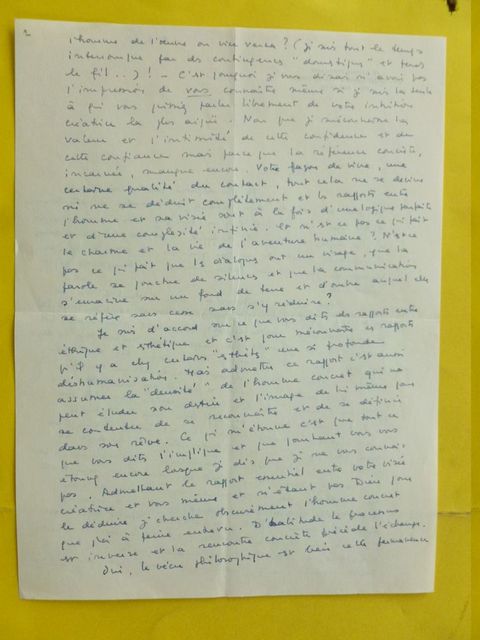 2
l'homme de l'œuvre ou vice versa ? (je suis tout le temps
interrompue par des contingences "domestiques" et perds
le fil...) ! - C'est pourquoi je vous disais n'avoir pas
l'impression de vous connaître même si je suis la seule
à qui vous puissiez parler librement de votre intuition
créatrice la plus aiguë. Non que je méconnaisse la
valeur et l'intimité de cette confidence et de
cette confiance mais parce que la référence concrète,
incarnée, manque encore. Votre façon de vivre, une
certaine qualité du contact, tout cela ne se devine
ni ne se déduit complètement et les rapports entre
l'homme et sa visée sont à la fois d'une logique parfaite
et d'une complexité infinie. Et n'est ce pas ce qui fait
le charme et la vie de l'aventure humaine ? N'est ce
pas ce qui fait que les dialogues ont un visage, que la
parole se ponctue de silences et que la communication
s'enracine sur un fond de terre et d'outre auquel elle
se réfère sans cesse sans s'y réduire ?
Je suis d'accord sur ce que vous dites des rapports entre
éthique et esthétique et c'est pour méconnaître ces rapports
qu'il y a chez certains "esthètes" une si profonde
déshumanisation. Mais admettre ce rapport c'est aussi
assumer la "densité" de l'homme concret qui ne
peut éluder son destin et l'image de lui même pour
se contenter de se reconnaître et de se définir
dans son rêve. Ce qui m'étonne c'est que tout ce
que vous dites l'implique et que pourtant vous vous
étonnez encore lorsque je dis que je ne vous connais
pas. Admettant le rapport essentiel entre votre visée
créatrice et vous même et n'étant pas Dieu pour
le déduire, je cherche obscurément l'homme concret
que j'ai à peine entrevu. D'habitude le processus
est inverse et la rencontre concrète précède l'échange.
Oui, le vécu philosophique est bien cette permanence